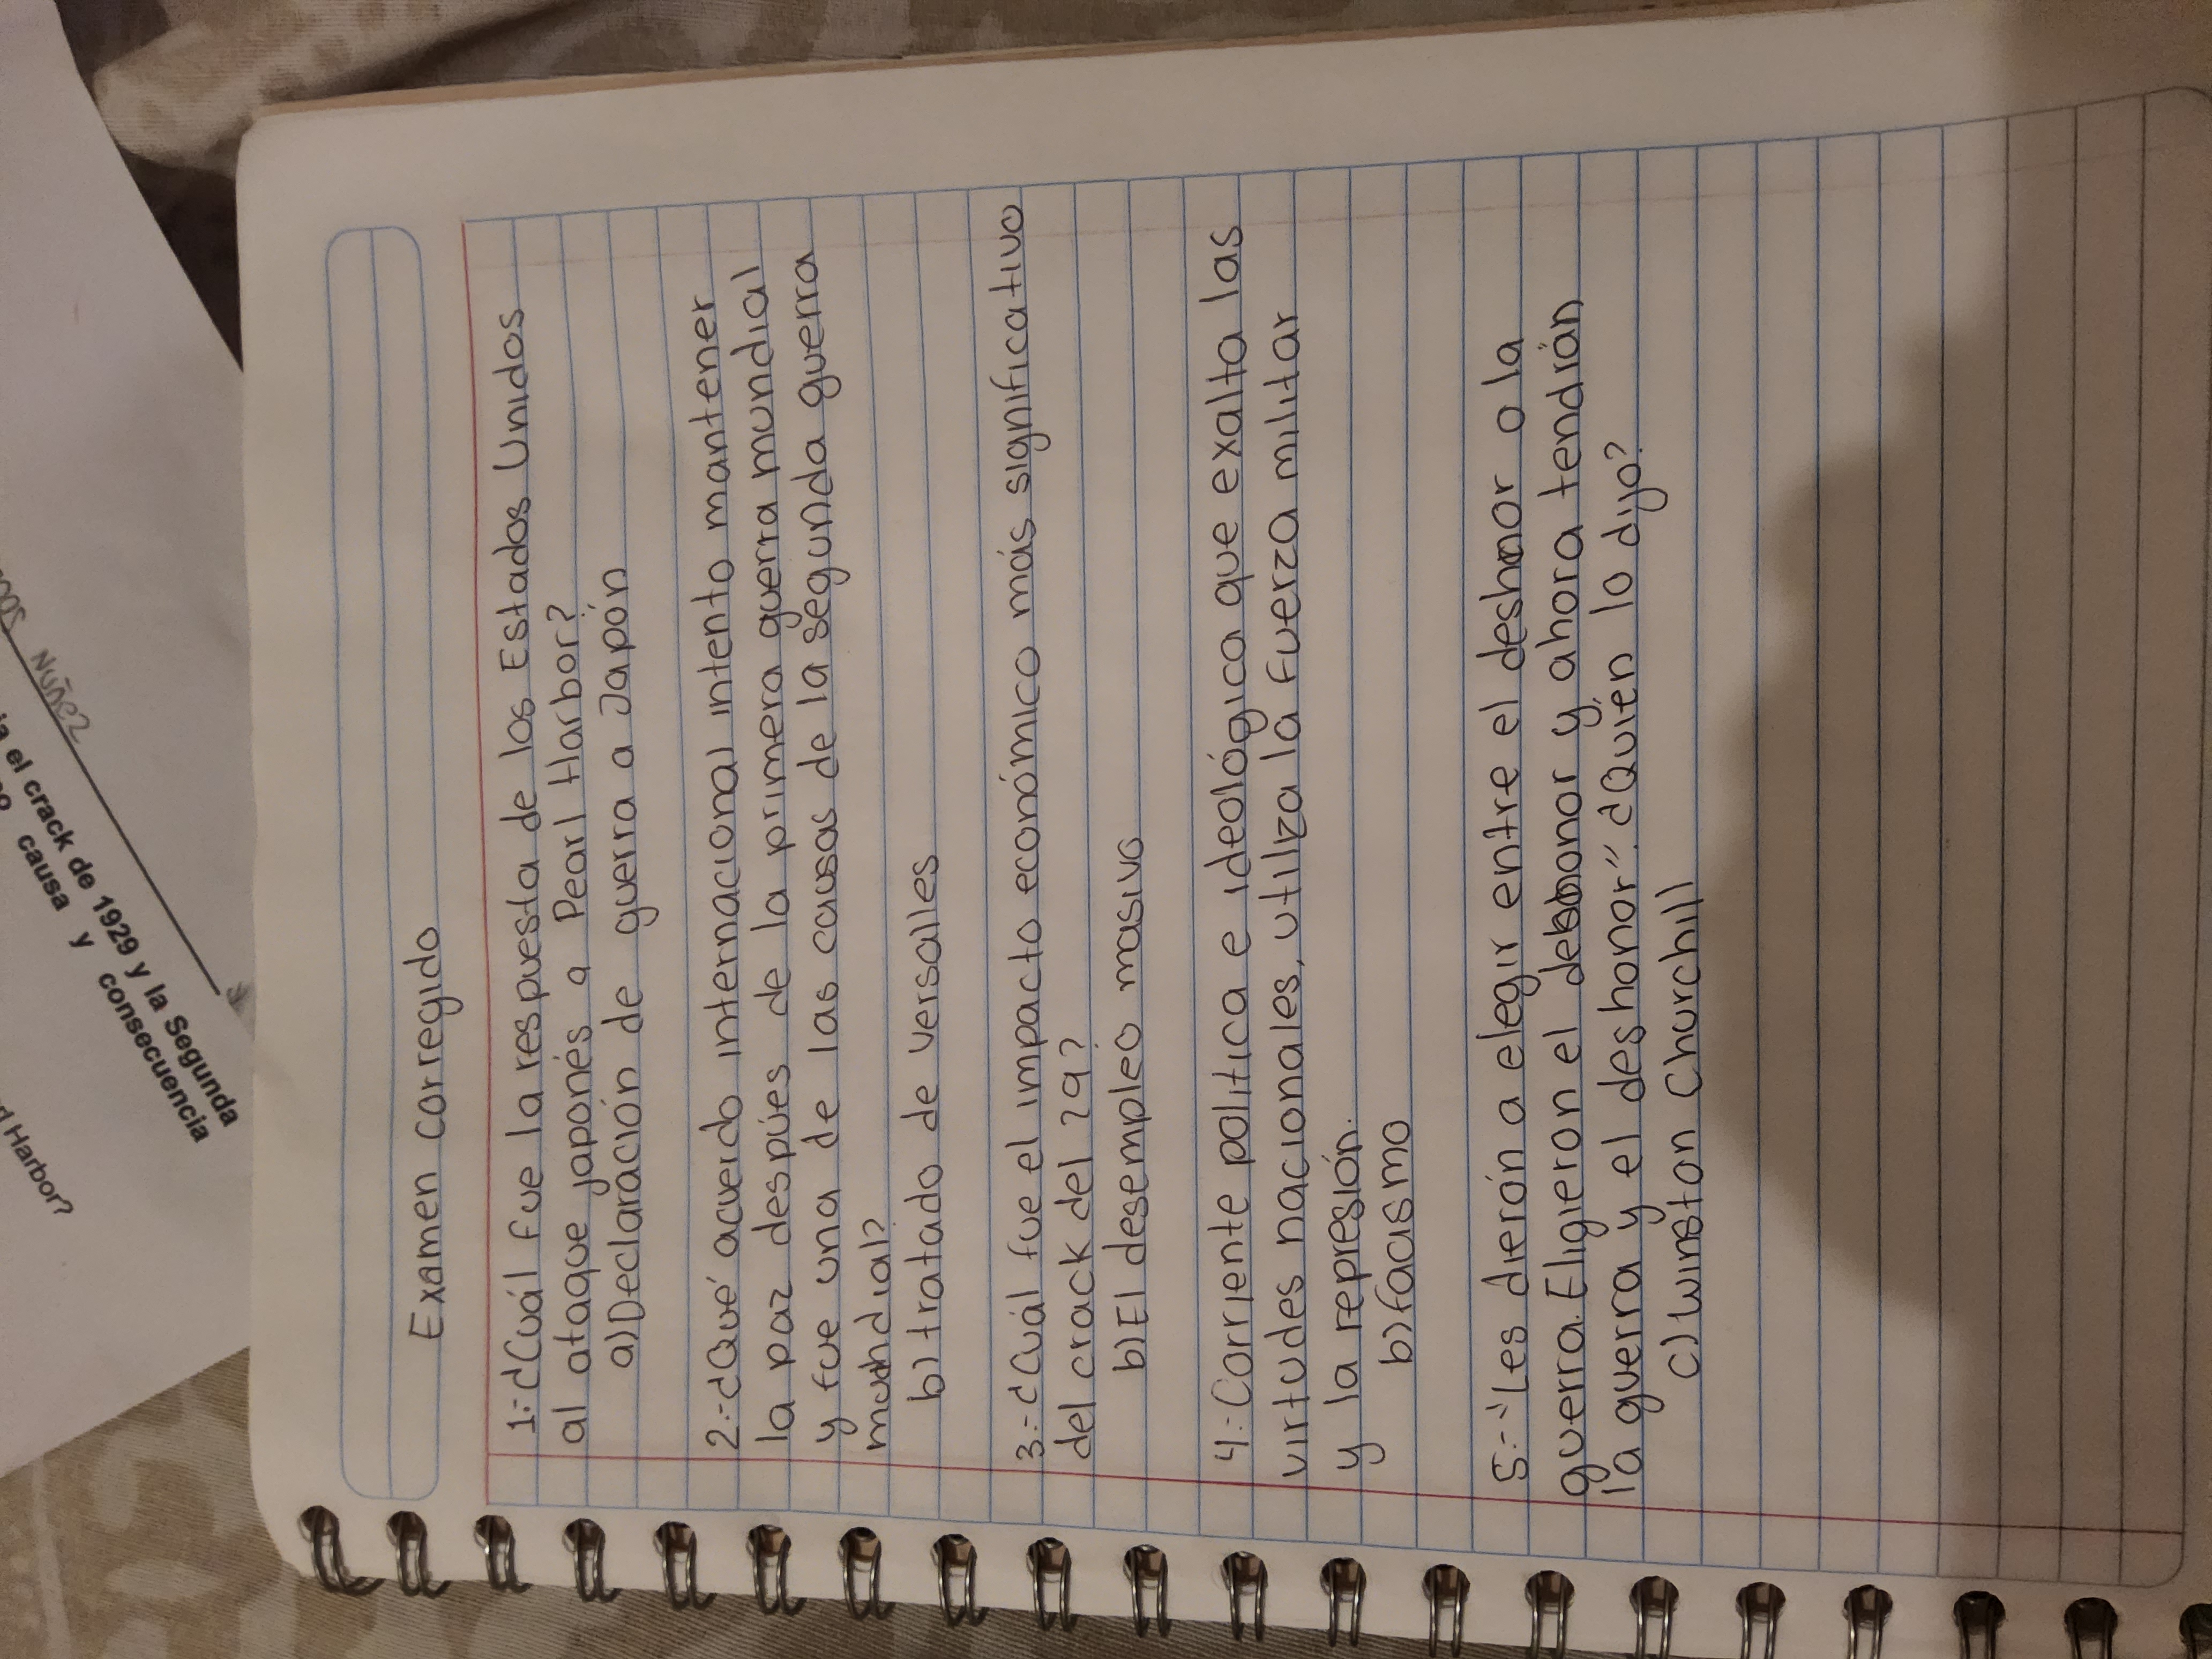 Examen corregido
1.-¿Cuál fue la respuesta de los Estados Unidos
al ataque japonés a Pearl Harbor?
a)Declaración de guerra a Japón
2.-¿Qué acuerdo internacional intento mantener
la paz despúes de la primera guerra mundial
y fue una de las causas de la segunda guerra
mundial?
b) tratado de versalles
3.-¿Cuál fue el impacto económico más significativo
del crack del 29?
b)El desempleo masivo
4.-Corriente politica e ideológica que exalta las
virtudes nacionales, utiliza la fuerza militar
y la represión.
b)facismo
5.-"Les dierón a elegir entre el deshonor o la
guerra. Eligieron el deshonor y ahora tendrán
la guerra y el deshonor". ¿Quién lo dijo?
c) Winston Churchill
Nuñez
el crack de 1929 y la Segunda
causa y consecuencia
Harbor?